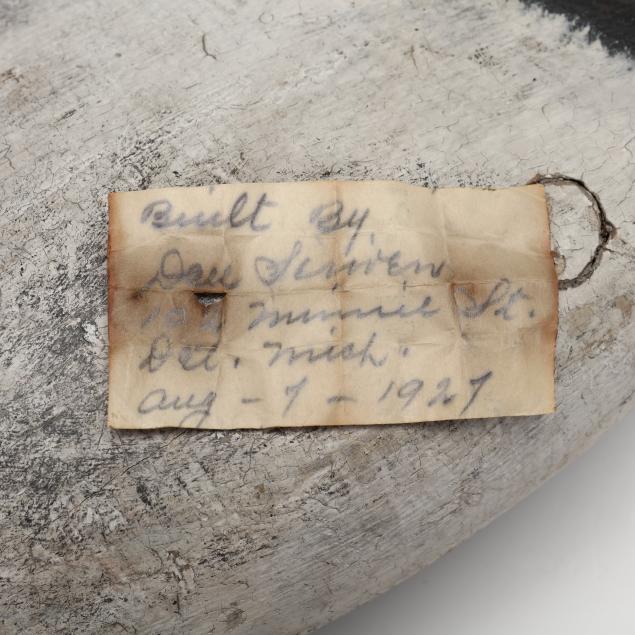 Built By
Dave Scriven
102 Minnie St.
Det. Mich.
Aug - 7 - 1927